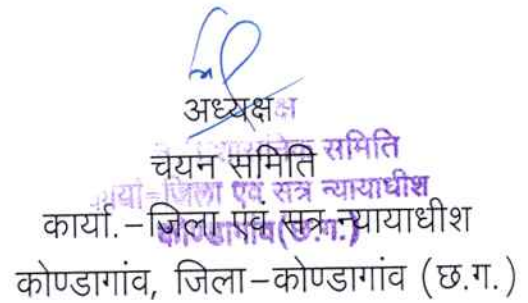 अध्यक्ष
चयन समिति
कार्या.-जिला एवं सत्र न्यायाधीश
कोण्डागांव, जिला-कोण्डागांव (छ.ग.)
समिति
जिला एवं सत्र न्यायाधीश
(छ.ग.)